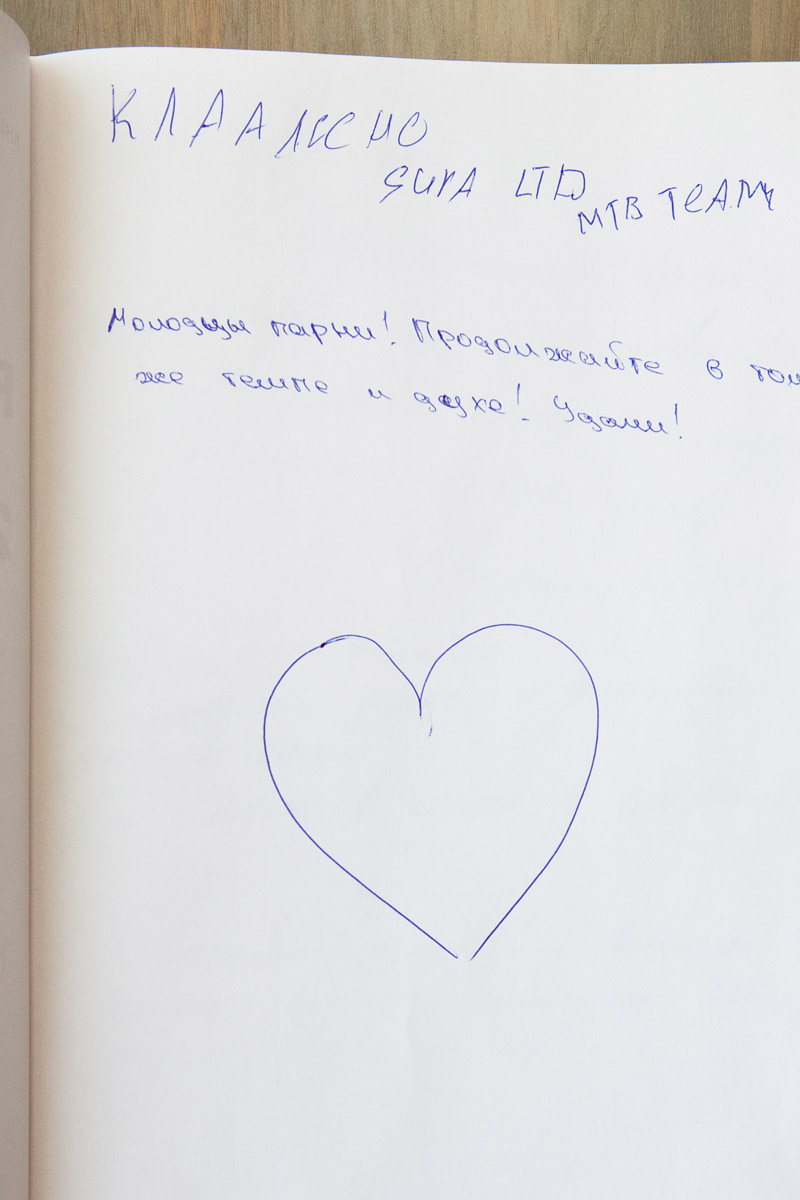 КЛААЛССНО
SURA LTD
MTB TEAM
Молодцы парни! Продолжайте в том
же темпе и духе! Удачи!